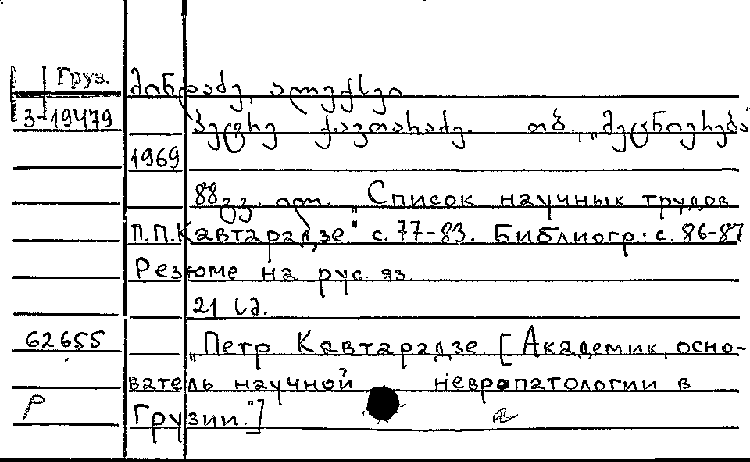 Груз. მინდაძე, ალექსი
3-19479 პეტრე ქავთარაძე. თბ., „მეცნიერება
1969
88 გვ. „Список научных трудов
П.П.Кавтарадзе" с. 77-83. Библиогр: с. 86-87
Резюме на рус. яз.
21 სმ.
62655 „Петр Кавтарадзе [Академик, осно-
ватель научной невропатологии в
Р Грузии."]